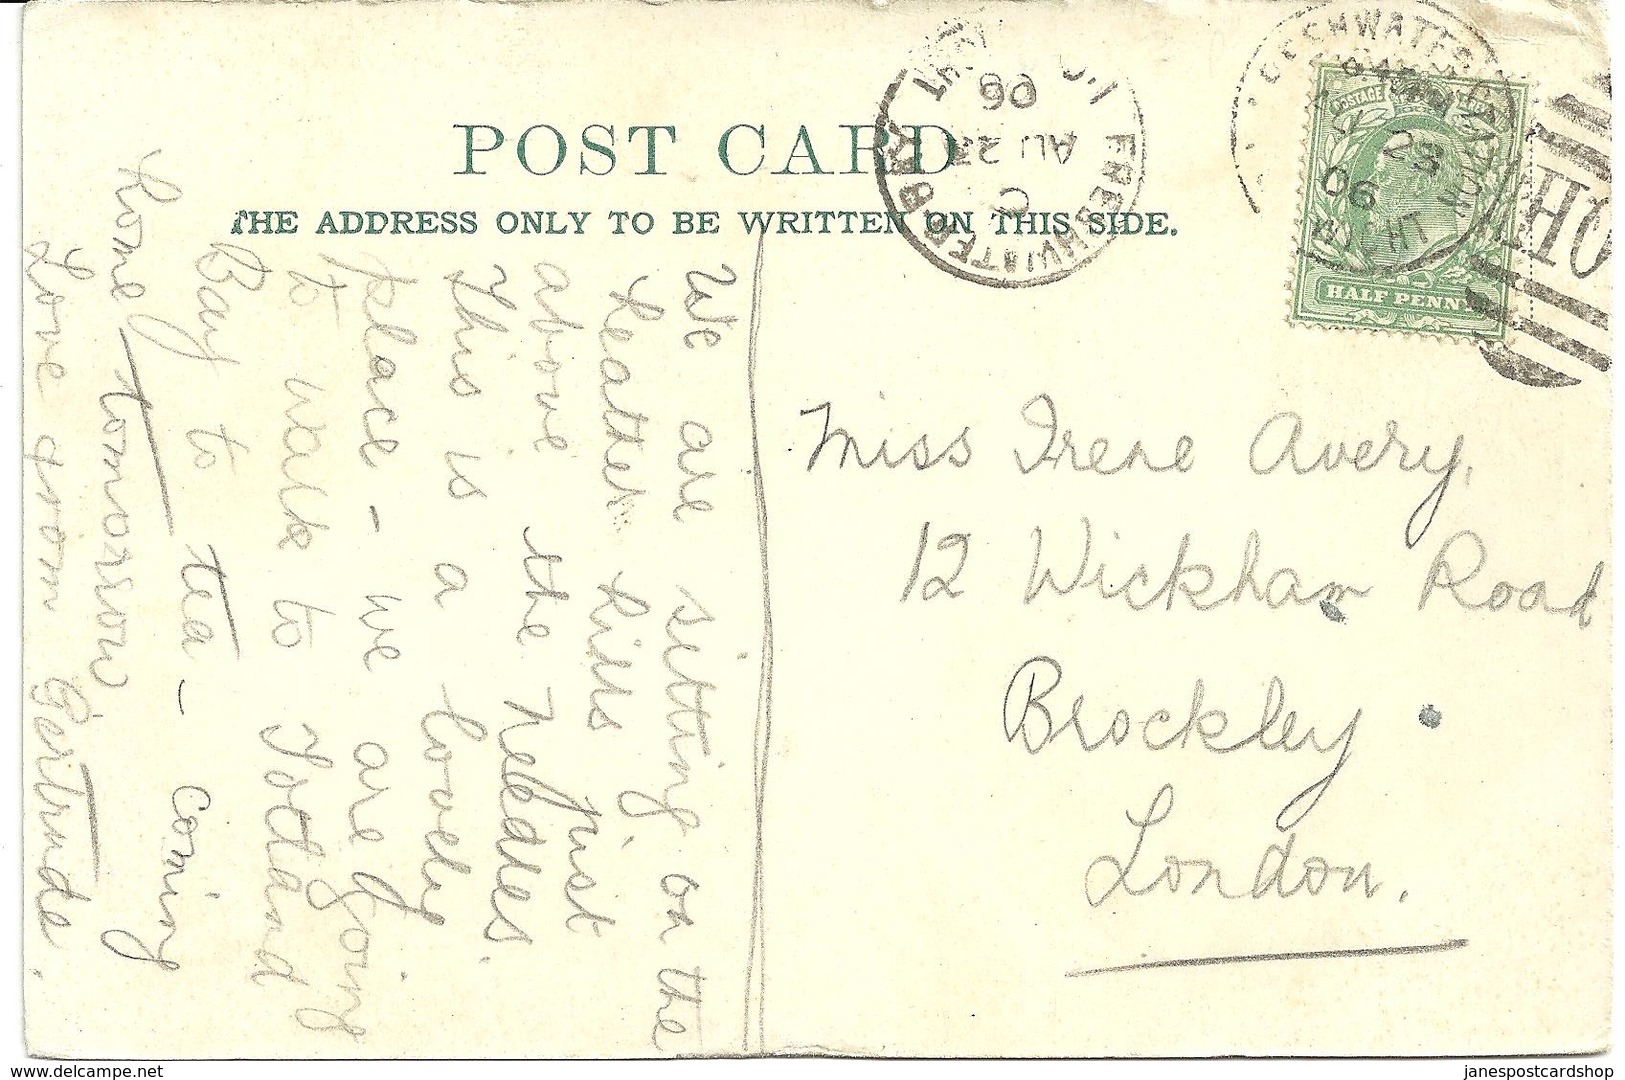 POST CARD
THE ADDRESS ONLY TO BE WRITTEN ON THIS SIDE.
FRESHWATER BAY
06
AU 27
FRESHWATER
AU 28
06
WIGHT
POSTAGE
HALF PENNY
We are sitting on the
Heather Hills just
above the Needles.
This is a lovely
place - we are going
to walk to Totland
Bay to tea - coming
home tomorrow
Love from Gertrude.
Miss Irene Avery,
12 Wickham Road
Brockley
London.
www.delcampe.net
janespostcardshop